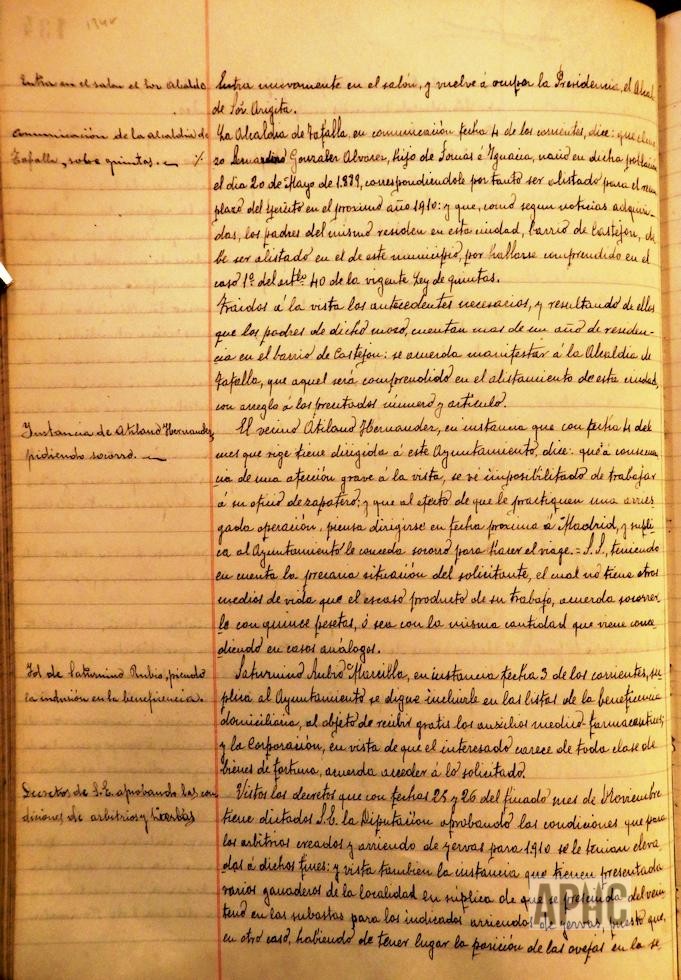 Entra en el salon el Sor Alcalde
Entra nuevamente en el salón, y vuelve á ocupar la Presidencia, el Alcal-
de Sor. Arigita.
Comunicación de la alcaldia de
Tafalla, sobre quintas.
La Alcaldia de Tafalla, en comunicación fecha 4 de los corrientes, dice: que el mo
zo Bernardino Gonzalez Alvarez, hijo de Tomás é Ignacia, nació en dicha población
el dia 20 de Mayo de 1.889, correspondiendole por tanto ser alistado para el reem
plazo del Ejército en el proximo año 1910: y que, como segun noticias adquiri-
das, los padres del mismo residen en esta ciudad, barrio de Castejon, de
be ser alistado en el de este municipio, por hallarse comprendido en el
caso 1º del artlo 40 de la vigente Ley de quintas.
Traidos á la vista los antecedentes necesarios, y resultando de ellos
que los padres de dicho mozo, cuentan mas de un año de residen-
cia en el barrio de Castejon: se acuerda manifestar á la Alcaldia de
Tafalla, que aquel será comprendido en el alistamiento de esta ciudad,
con arreglo á los precitados número y articulo.
Instancia de Atilano Hernandez,
pidiendo socorro.
El vecino Atilano Hernandez, en instancia que con fecha 4 del
mes que rige tiene dirigida á este Ayuntamiento, dice: que á consecuen
cia de una afección grave á la vista, se vé imposibilitado de trabajar
á su oficio de zapatero; y que al efecto de que le practiquen una arries
gada operación, piensa dirigirse en fecha proxima á Madrid, y supli
ca al Ayuntamiento le conceda socorro para hacer el viage. = S.S., teniendo
en cuenta la precaria situación del solicitante, el cual no tiene otros
medios de vida que el escaso producto de su trabajo, acuerda socorrer
lo con quince pesetas, ó sea con la misma cantidad que viene conce
diendo en casos análogos.
Id de Saturnino Rubio, pidiendo
la inclusión en la beneficencia.
Saturnino Rubio Marcilla, en instancia fecha 3 de los corrientes, su
plica al Ayuntamiento se digne incluirle en las listas de la beneficencia
domiciliaria, al objeto de recibir gratis los auxilios medico-farmaceuticos;
y la Corporación, en vista de que el interesado carece de toda clase de
bienes de fortuna, acuerda acceder á lo solicitado.
Decretos de S.E. aprobando las con
diciones de arbitrios y hierbas
Vistos los decretos que con fechas 25 y 26 del finado mes de Noviembre
tiene dictados S.E. la Diputación aprobando las condiciones que para
los arbitrios creados y arriendo de yervas para 1910 se le tenian eleva
das á dichos fines: y vista tambien la instancia que tienen presentada
varios ganaderos de la localidad en súplica de que se prescinda del vein
teno en las subastas para los indicados arriendos de yervas, puesto que,
en otro caso, habiendo de tener lugar la parición de las ovejas en la se
APNC